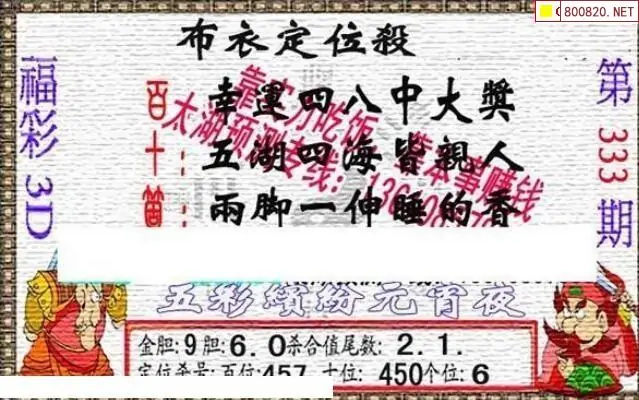 800820.NET
布衣定位殺
福彩3D
第333期
百十個
幸運四八中大獎
五湖四海皆親人
兩脚一伸睡的香
靠实力吃饭 靠本事赚钱
太湖预测专线:
五彩缤纷元宵夜
金胆:9胆:6.0杀合值尾数:2.1.
定位杀号:百位:457 十位:450个位:6